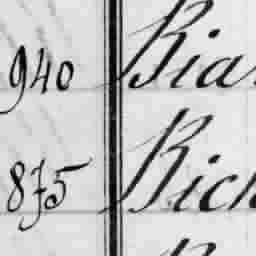 940 Bian
875 Rich